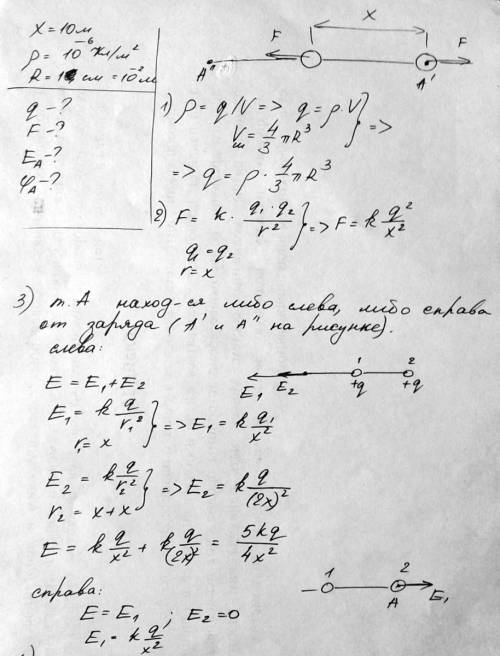 x = 10м
ρ = 10⁻⁶ Кл/м²
R = 1 см = 10⁻² м
q - ?
F - ?
E_A - ?
φ_A - ?
x
F
F
A''
A'
1) ρ = q/V => q = ρ·V } =>
V_ш = 4/3 πR³
=> q = ρ · 4/3 πR³
2) F = k · q₁·q₂/r² } => F = k q²/x²
q₁ = q₂
r = x
3) т. А наход-ся либо слева, либо справа
от заряда (A' и A'' на рисунке).
слева:
E₁ E₂ 1 +q 2 +q
E = E₁ + E₂
E₁ = k q/r₁² } => E₁ = k q₁/x²
r₁ = x
E₂ = k q/r₂² } => E₂ = k q/(2x)²
r₂ = x + x
E = k q/x² + k q/(2x)² = 5kq/4x²
справа:
1 2 A E₁
E = E₁ ; E₂ = 0
E₁ = k q/x²